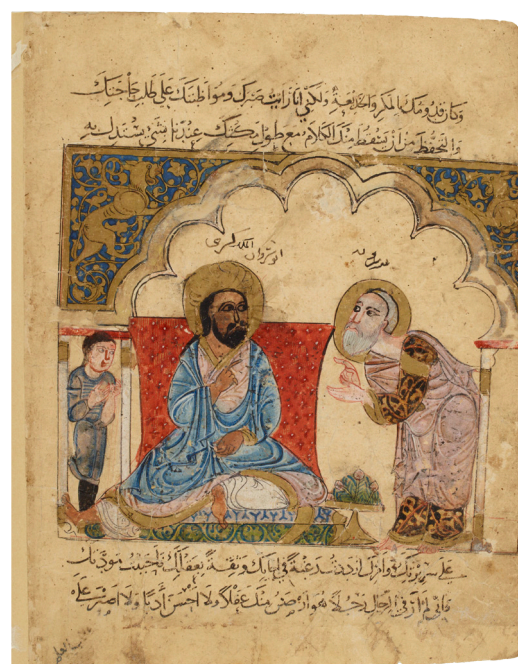 وكان قدومك بالمكر والخديعة ولكني لما رايت صبرك ومواظبتك على طلب حاجتك
والتحفظ من ان تسقط منك الكلام مع طول مكثك عندنا بشي تستدل به
انوشروان الملك كسرى
برزويه
على سريرتك ازددت رغبة في اخايك وثقة بعقلك فاحببت مودتك
فاني لم ار في الرجال رجلا هو ارصن منك عقلا ولا احسن ادبا ولا اصبر على